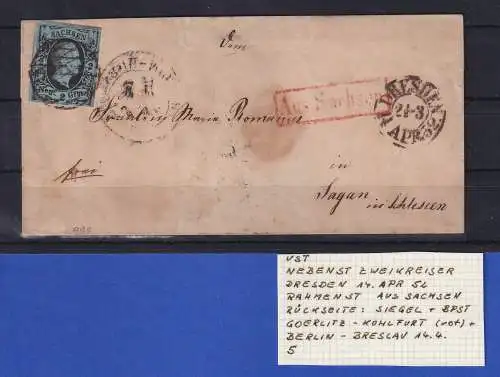 SACHSEN
Neu 2 Grsch
Dem
Aus Sachsen
DRESDEN
APR. 52
Fräulein Maria Romanus
in
frei
Sagan
in Schlesien
VST
NEBENST ZWEIKREISER
DRESDEN 14. APR 52
RAHMENST AUS SACHSEN
RÜCKSEITE: SIEGEL + BPST
GOERLITZ - KOHLFURT (rot) +
BERLIN - BRESLAU 14.4.
5